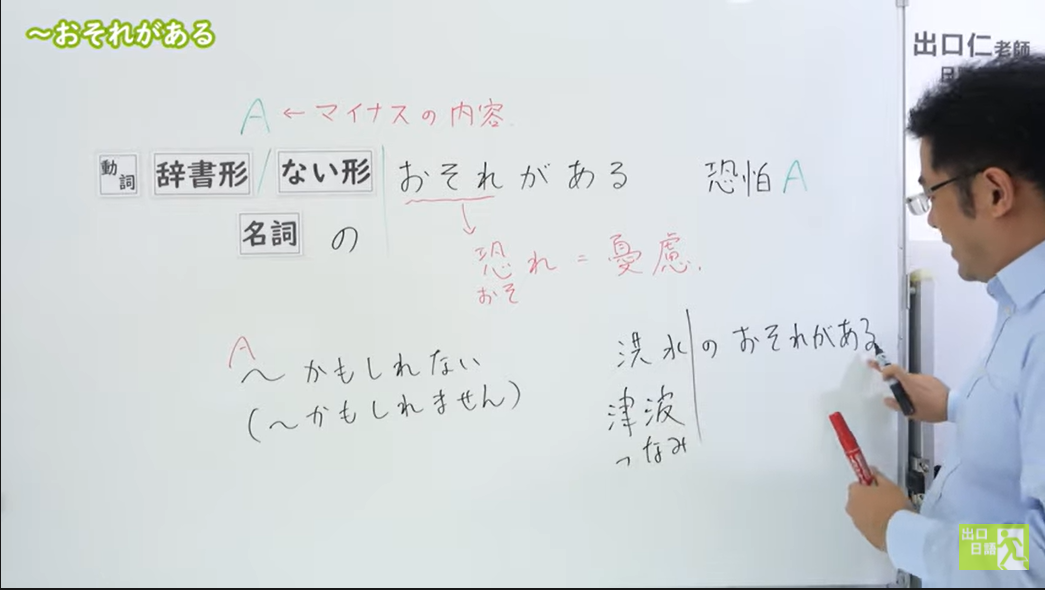 ~おそれがある
出口仁老師
A ← マイナスの内容
動詞 辞書形 / ない形 おそれがある 恐怕A
名詞 の
恐れ = 憂慮.
おそ
A
~かもしれない
(~かもしれません)
洪水のおそれがある
津波
つなみ
出口
日語